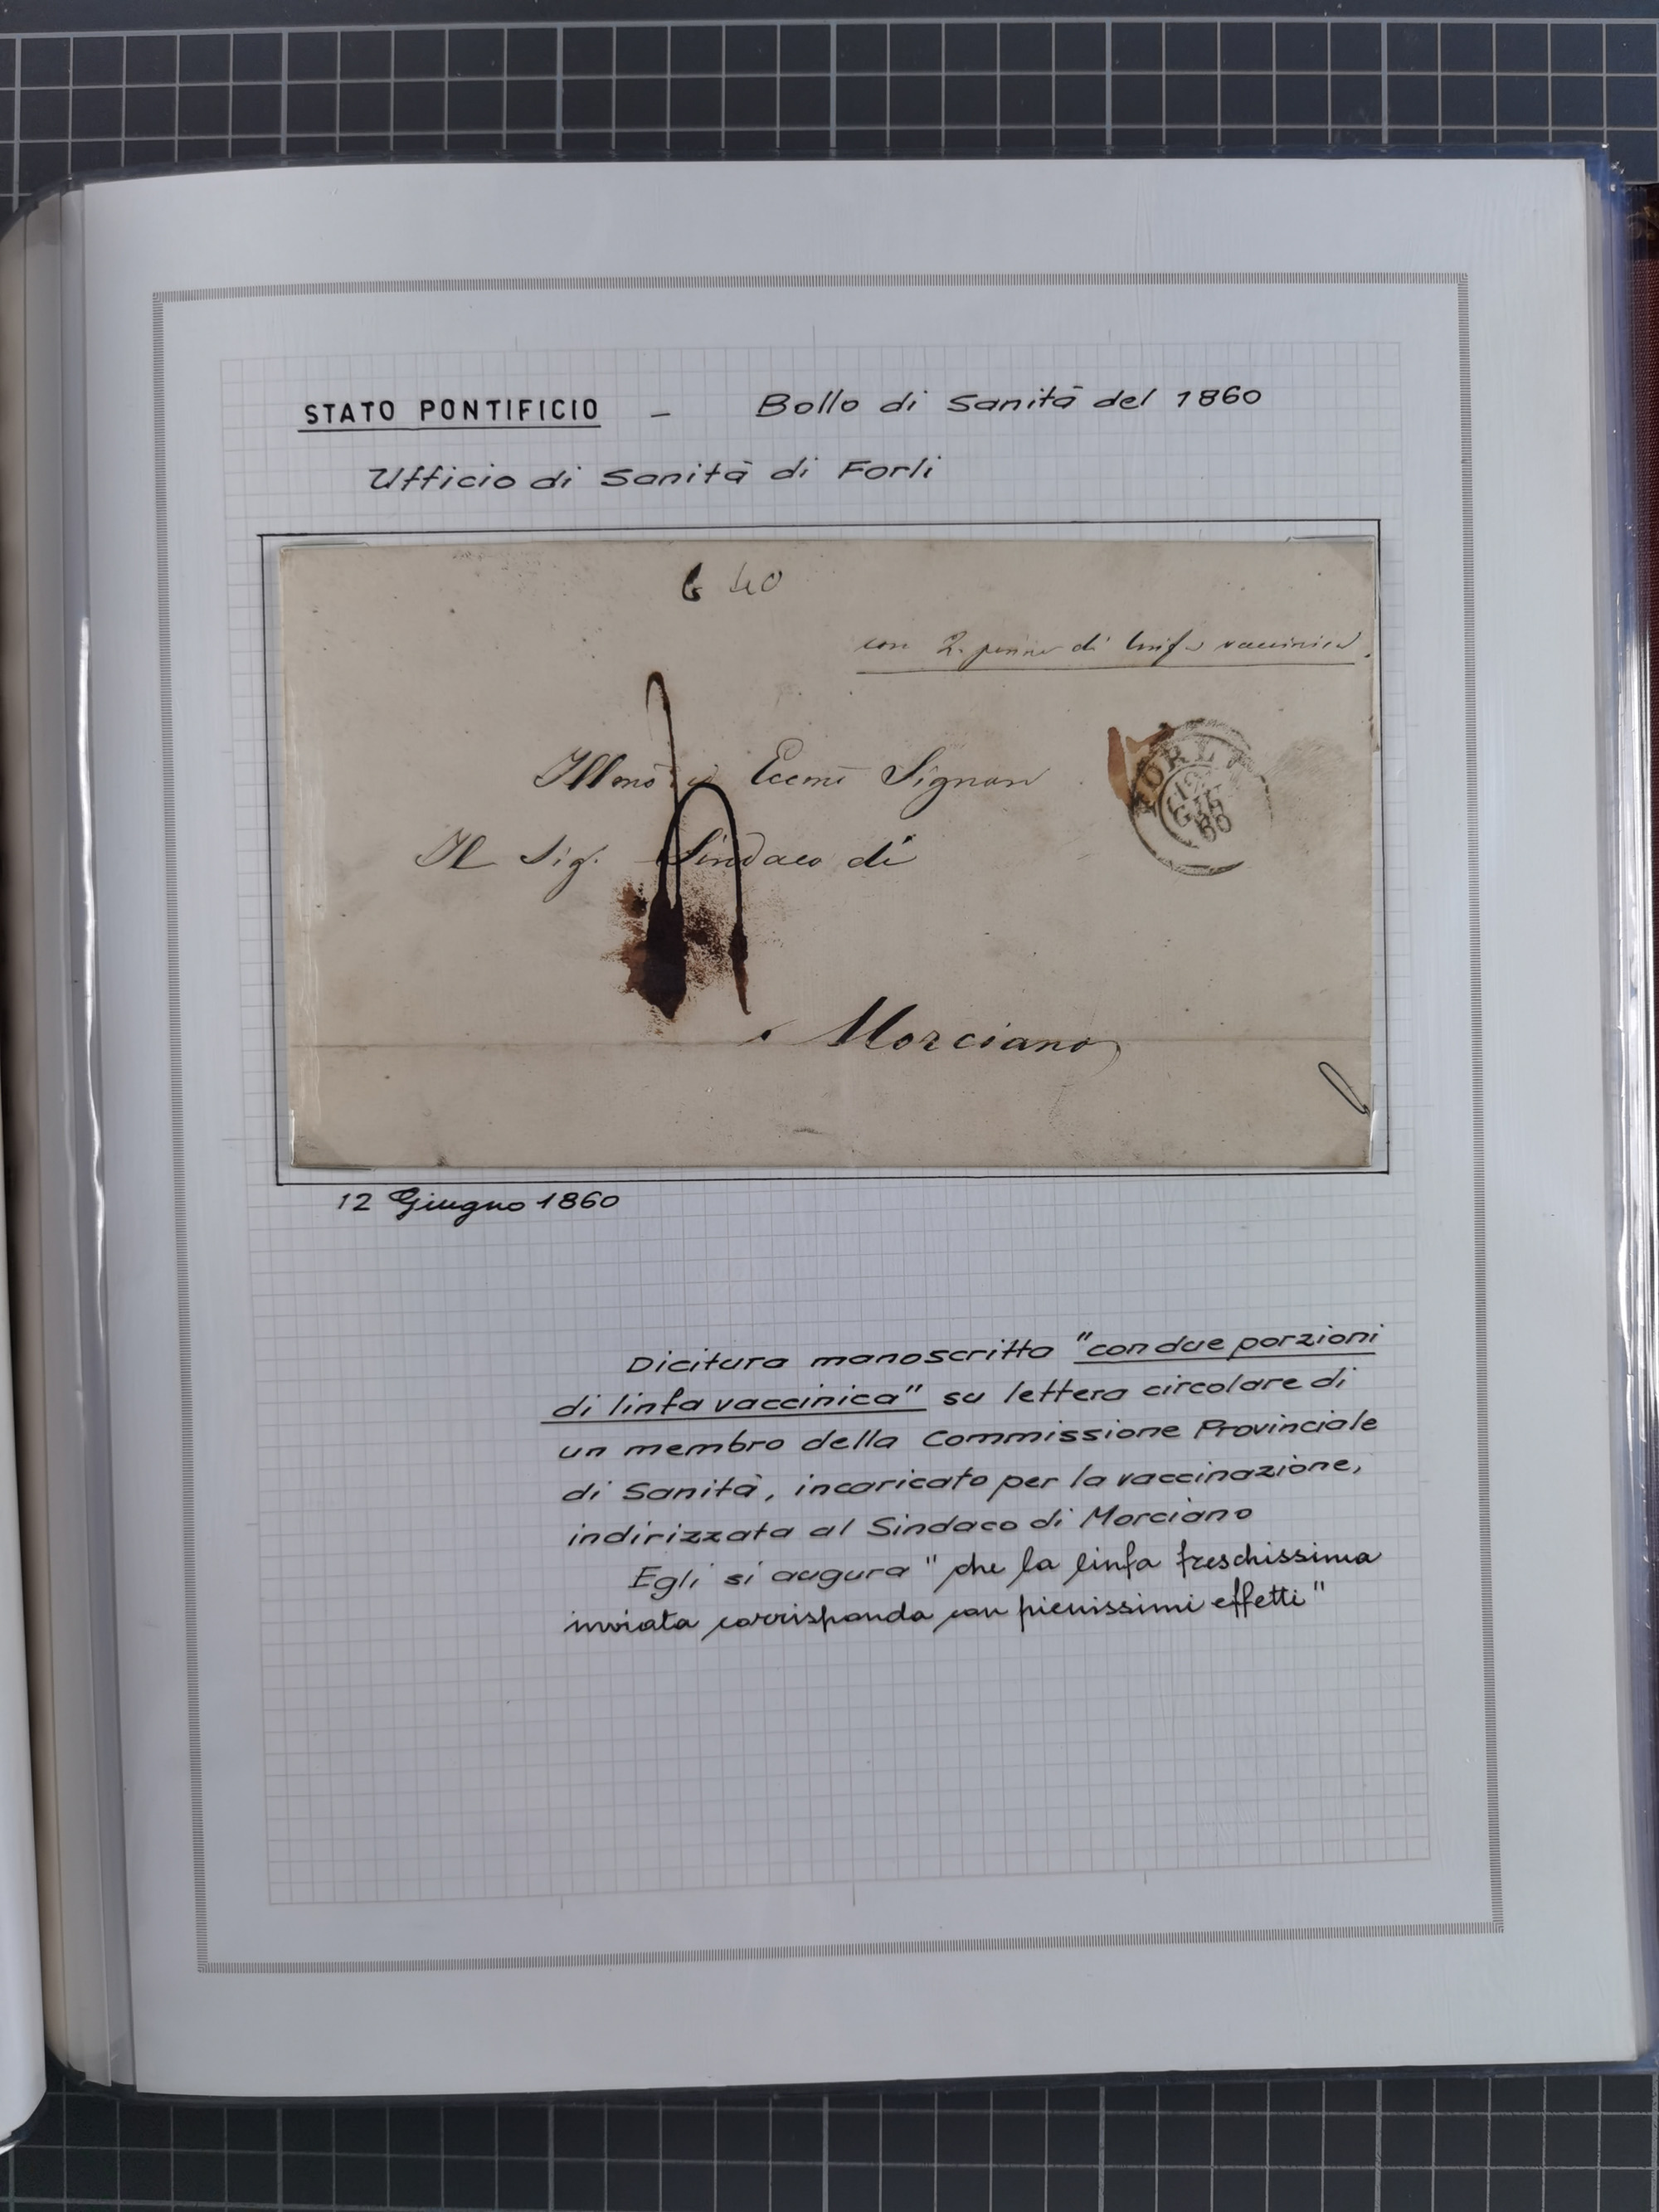 STATO PONTIFICIO - Bollo di Sanità del 1860
Ufficio di Sanità di Forli
40
con 2. penne di linfa vaccinica
FORLI
12
GIU
60
Illmo Eccmo Signore
Il Sig. Sindaco di
Morciano
12 Giugno 1860
Dicitura manoscritta "con due porzioni
di linfa vaccinica" su lettera circolare di
un membro della Commissione Provinciale
di Sanità, incaricato per la vaccinazione,
indirizzata al Sindaco di Morciano
Egli si augura "che la linfa freschissima
inviata corrisponda con pienissimi effetti"